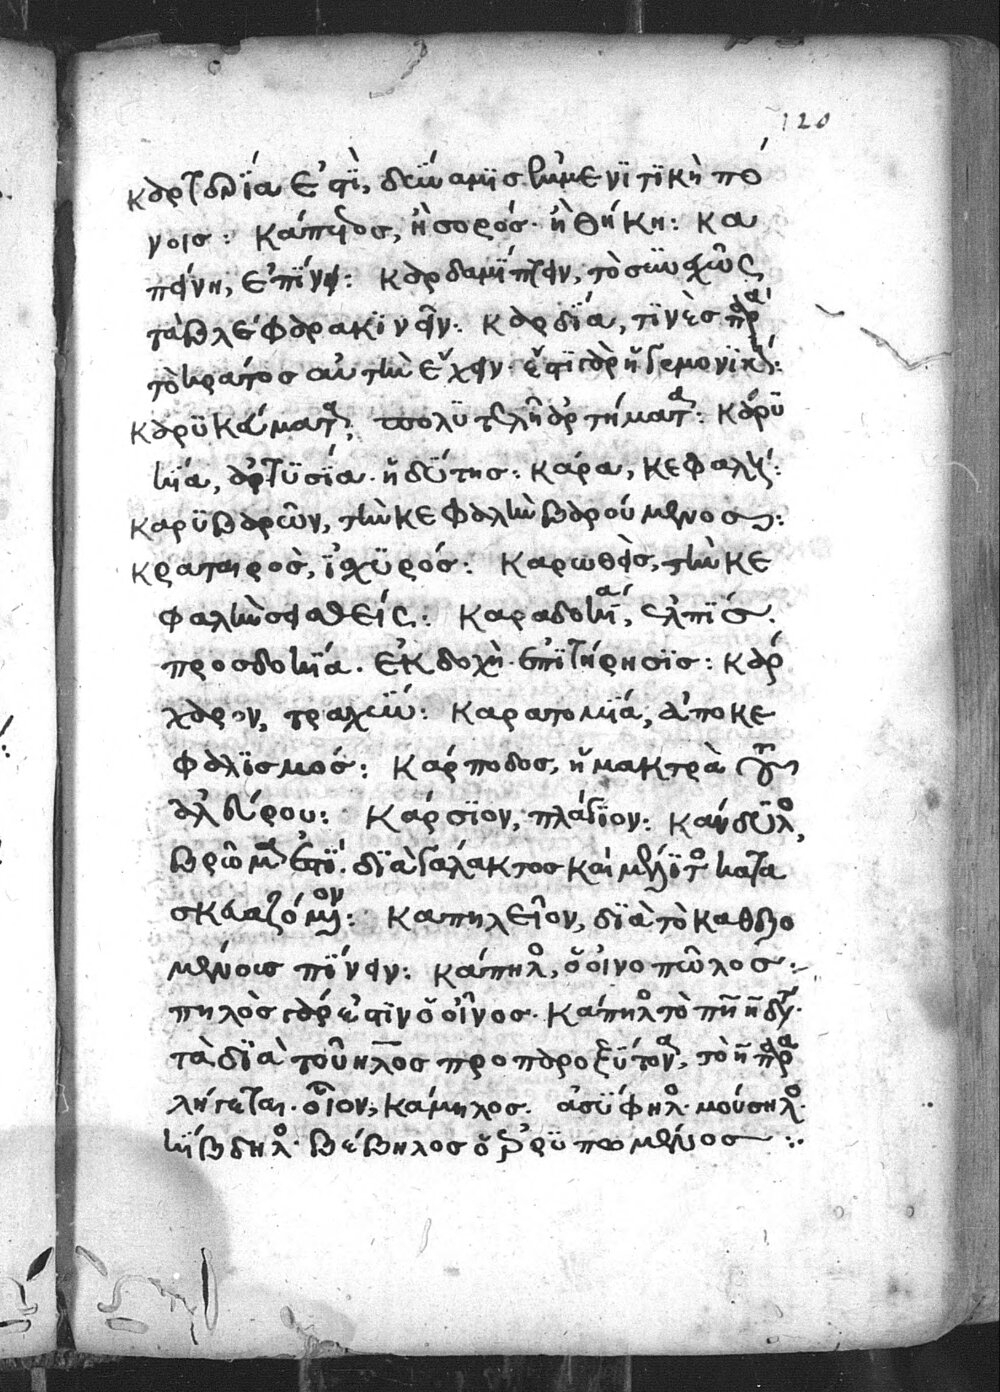 120
καρτερία ἐστὶ, δύναμις ὑπομενητικὴ πό
νοις: κάπετος, ἢ σορός· ἢ θήκη: κα
πάνη, ἐπίνη: καρδαμύττειν, τὸ συνεχῶς
τὰ βλέφαρα κινεῖν: καρδία, τινὲς παρὰ
τὸ κράτος αὐτὴν ἔχειν· ἔστι γὰρ ἡγεμονικόν:
καρυκεύματα, πολυτελῆ ἀρτήματα: καρυ
κία, ἀρτυσία· ἡδύτης: κάρα, κεφαλή:
καρυβαρῶν, τὴν κεφαλὴν βαρούμενος:
κραταιρὸς, ἰσχυρός: καρωθεὶς, τὴν κε
φαλὴν σφαθείς: καραδοκία, ἐλπίς·
προσδοκία· ἐκδοχὴ· ἐπιτήρησις: κάρ
χαρον, τραχύν: καρατομία, ἀποκε
φαλισμός: κάρποδος, ἡ μάκτρα τοῦ
ἀλεύρου: κάρσιον, πλάγιον: κάνδυλος,
βρῶμα ἐστὶ· διὰ γάλακτος καὶ μέλιτος κατα
σκευαζόμενον: καπηλεῖον, διὰ τὸ καθεζο
μένοις πίνειν: κάπηλος, ὁ οἰνοπώλος·
πηλὸς γάρ ἐστιν ὁ οἶνος· κάπηλος τὸ πη η δι
τὰ διὰ τοῦ ηλος προπαροξύτονα, τὸ η παρα
λήγεται· οἷον, κάμηλος· ἀσύφηλος· μούσηλος·
κίβδηλος· βέβηλος ὁ ἐρρυπωμένος: